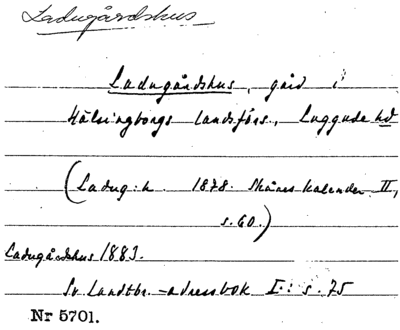 Ladugårdshus
Ladugårdshus, gård i
Hälsingborgs landsförs., Luggude hd
(Ladug:h. 1878. Skånes kalender II,
s. 60.)
Ladugårdshus 1883.
Sv. Landtbr.-adressbok I: s. 75
Nr 5701.